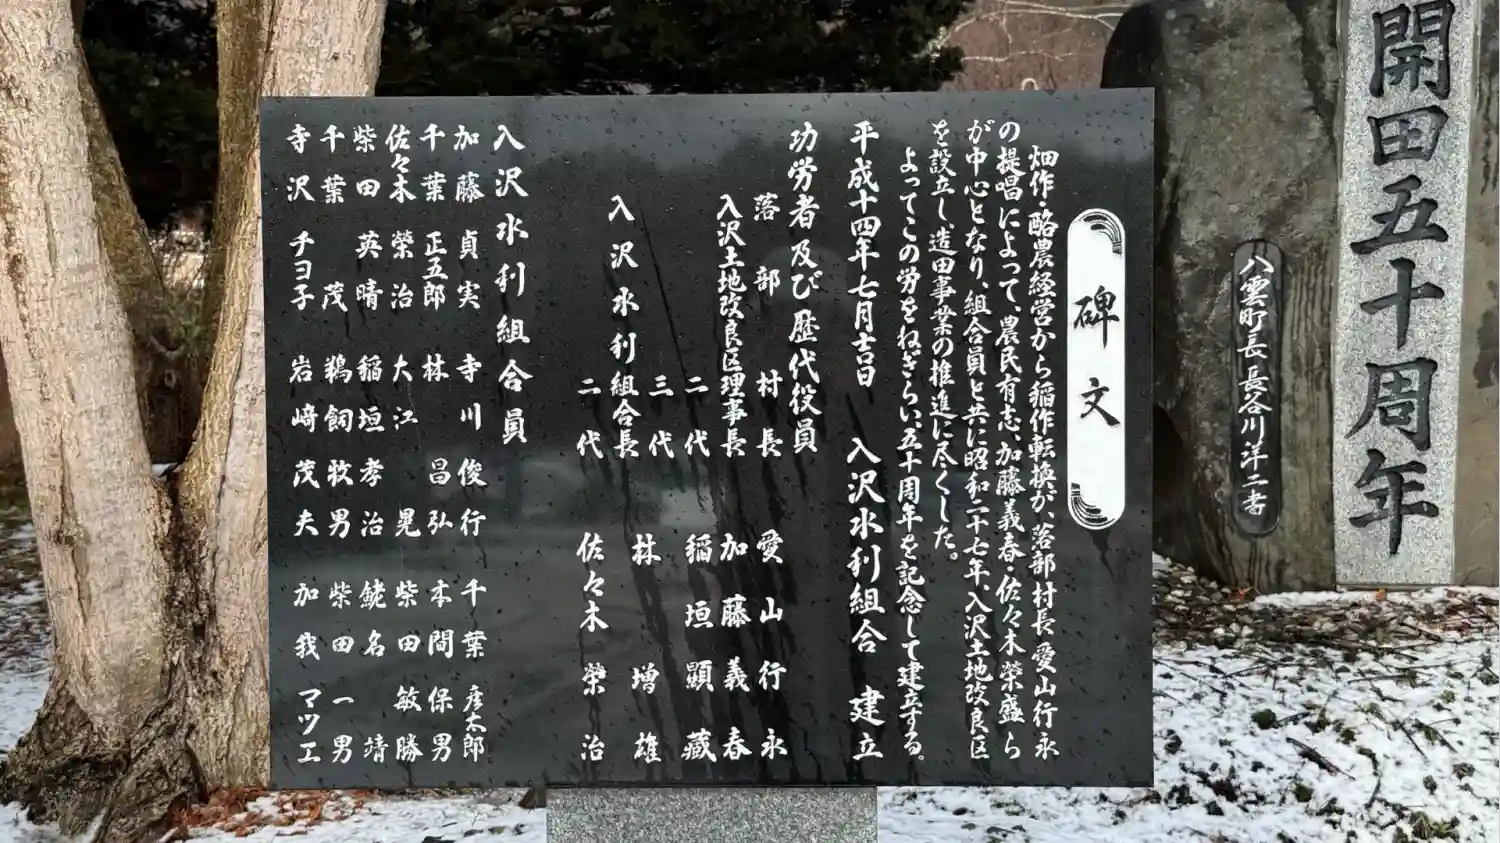 開田五十周年
八雲町長 長谷川洋二書
碑文
畑作・酪農経営から稲作転換が、落部村長愛山行永
の提唱によって、農民有志、加藤義春・佐々木榮盛ら
が中心となり、組合員と共に昭和二十七年、入沢土地改良区
を設立し、造田事業の推進に尽くした。
よってこの労をねぎらい、五十周年を記念して建立する。
平成十四年七月吉日 入沢水利組合 建立
功労者及び歴代役員
落部村長 愛山行永
入沢土地改良区理事長 加藤義春
二代 稲垣顕藏
三代 林増雄
入沢水利組合長
二代 佐々木榮治
入沢水利組合員
加藤貞実 寺川俊行 千葉彦太郎
千葉正五郎 林昌弘 本間保男
佐々木榮治 大江晃 柴田敏勝
柴田英晴 稲垣孝治 蛯名靖
千葉茂 鵜飼牧男 柴田一男
寺沢チヨ子 岩崎茂夫 加我マツエ